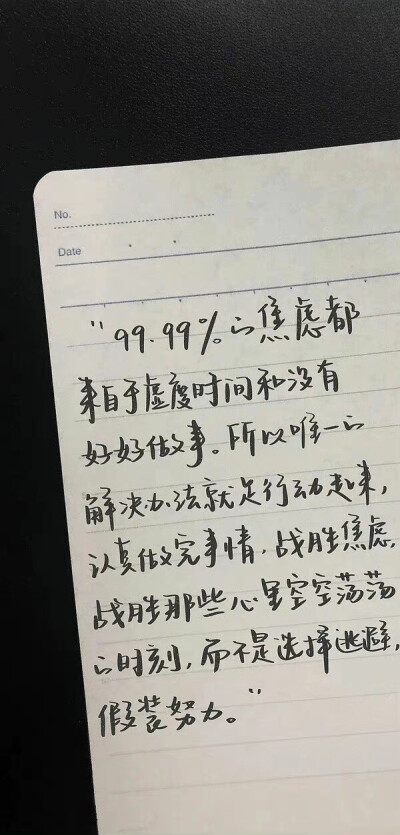 No.
Date
"99.99%的焦虑都
来自于虚度时间和没有
好好做事。所以唯一的
解决办法就是行动起来,
认真做完事情,战胜焦虑,
战胜那些心里空空荡荡
的时刻,而不是选择逃避,
假装努力。"